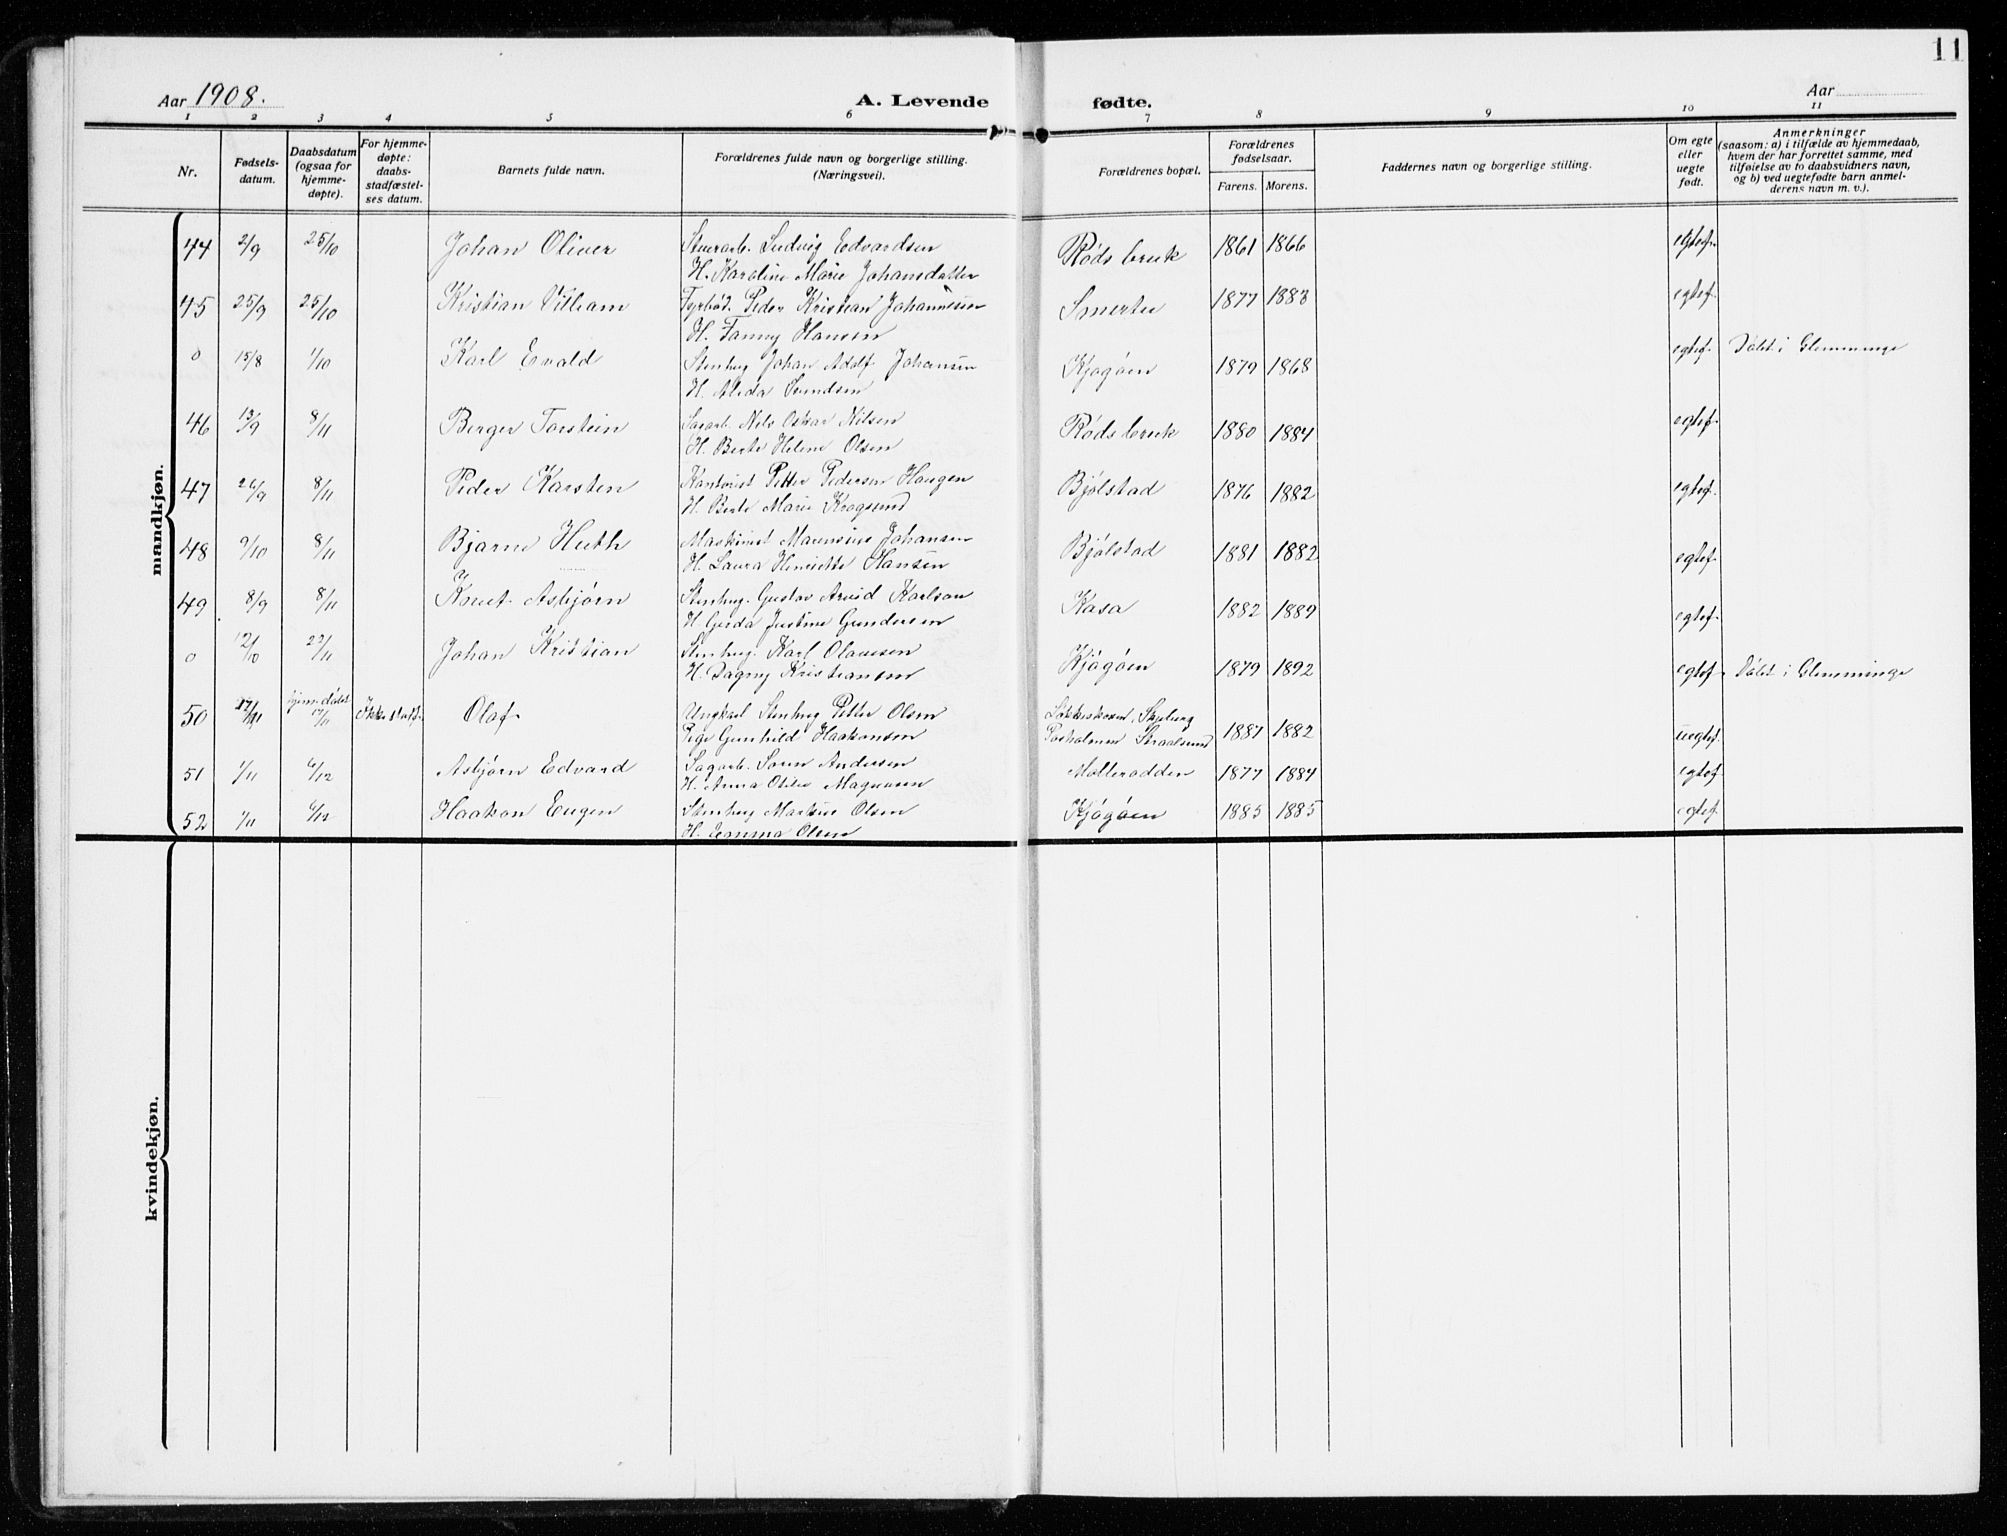 11
Aar 1908.
A. Levende fødte.
Aar
1 2 3 4 5 6 7 8 9 10 11
Nr.
Fødsels-
datum.
Daabsdatum
(ogsaa for
hjemme-
døpte).
For hjemme-
døpte:
daabs-
stadfæstel-
ses datum.
Barnets fulde navn.
Forældrenes fulde navn og borgerlige stilling.
(Næringsvei).
Forældrenes bopæl.
Forældrenes
fødselsaar.
Farens. Morens.
Faddernes navn og borgerlige stilling.
Om egte
eller
uegte
født.
Anmerkninger
(saasom: a) i tilfælde av hjemmedaab,
hvem der har forrettet samme, med
tilføielse av to daabsvidners navn,
og b) ved uegtefødte barn anmel-
derens navn m. v.).
mandkjøn.
44 2/9 25/10 Johan Oliver Stuerarb. Ludvig Edvardsen Røds bruk 1861 1866 egtef.
H. Karoline Marie Johansdatter
45 25/9 25/10 Kristian Villiam Fyrbød. Peder Kristian Johannesen 1877 1883 egtef.
H. Fanny Hansen
0 15/8 1/10 Karl Evald Stenhug Johan Adolf Johansen Kjøgøen 1879 1868 egtef. Døbt i Glemminge
H. Alida
46 13/9 8/11 Berger Torstein Nils Oskar Nilsen Røds bruk 1880 1884 egtef.
H. Berte Helene Olsen
47 26/9 8/11 Peder Karsten Kontorist Petter Pedersen Haugen Bjølstad 1876 1882 egtef.
H. Berte Marie Krogsund
48 9/10 8/11 Bjarne Huth Maskinist Marensius Johansen Bjølstad 1881 1882 egtef.
H. Laura Henriette Hansen
49 8/9 8/11 Knut Asbjørn Stenhug. Gustav Arvid Karlson Kasa 1882 1889 egtef.
H. Gerda Justine Gundersen
0 12/10 22/11 Johan Kristian Stenhug. Karl Olausen Kjøgøen 1879 1892 egtef. Døbt i Glemminge
H. Dagny Kristiansen
50 17/11 hjem. døbt 17/11 Ikke stadf. Olaf Ungkarl Stenhug Petter Olsen Skjeberg 1887 1882 uegtef.
Pige Gunhild Haakonsen
51 1/11 6/12 Asbjørn Edvard Sagarb. Søren Andersen Møllerodden 1877 1884 egtef.
H. Anna Otilie Magnusen
52 1/11 6/12 Haakon Eugen Stenhug Markus Olsen Kjøgøen 1885 1885 egtef.
H. Emma Olsen
kvindekjøn.